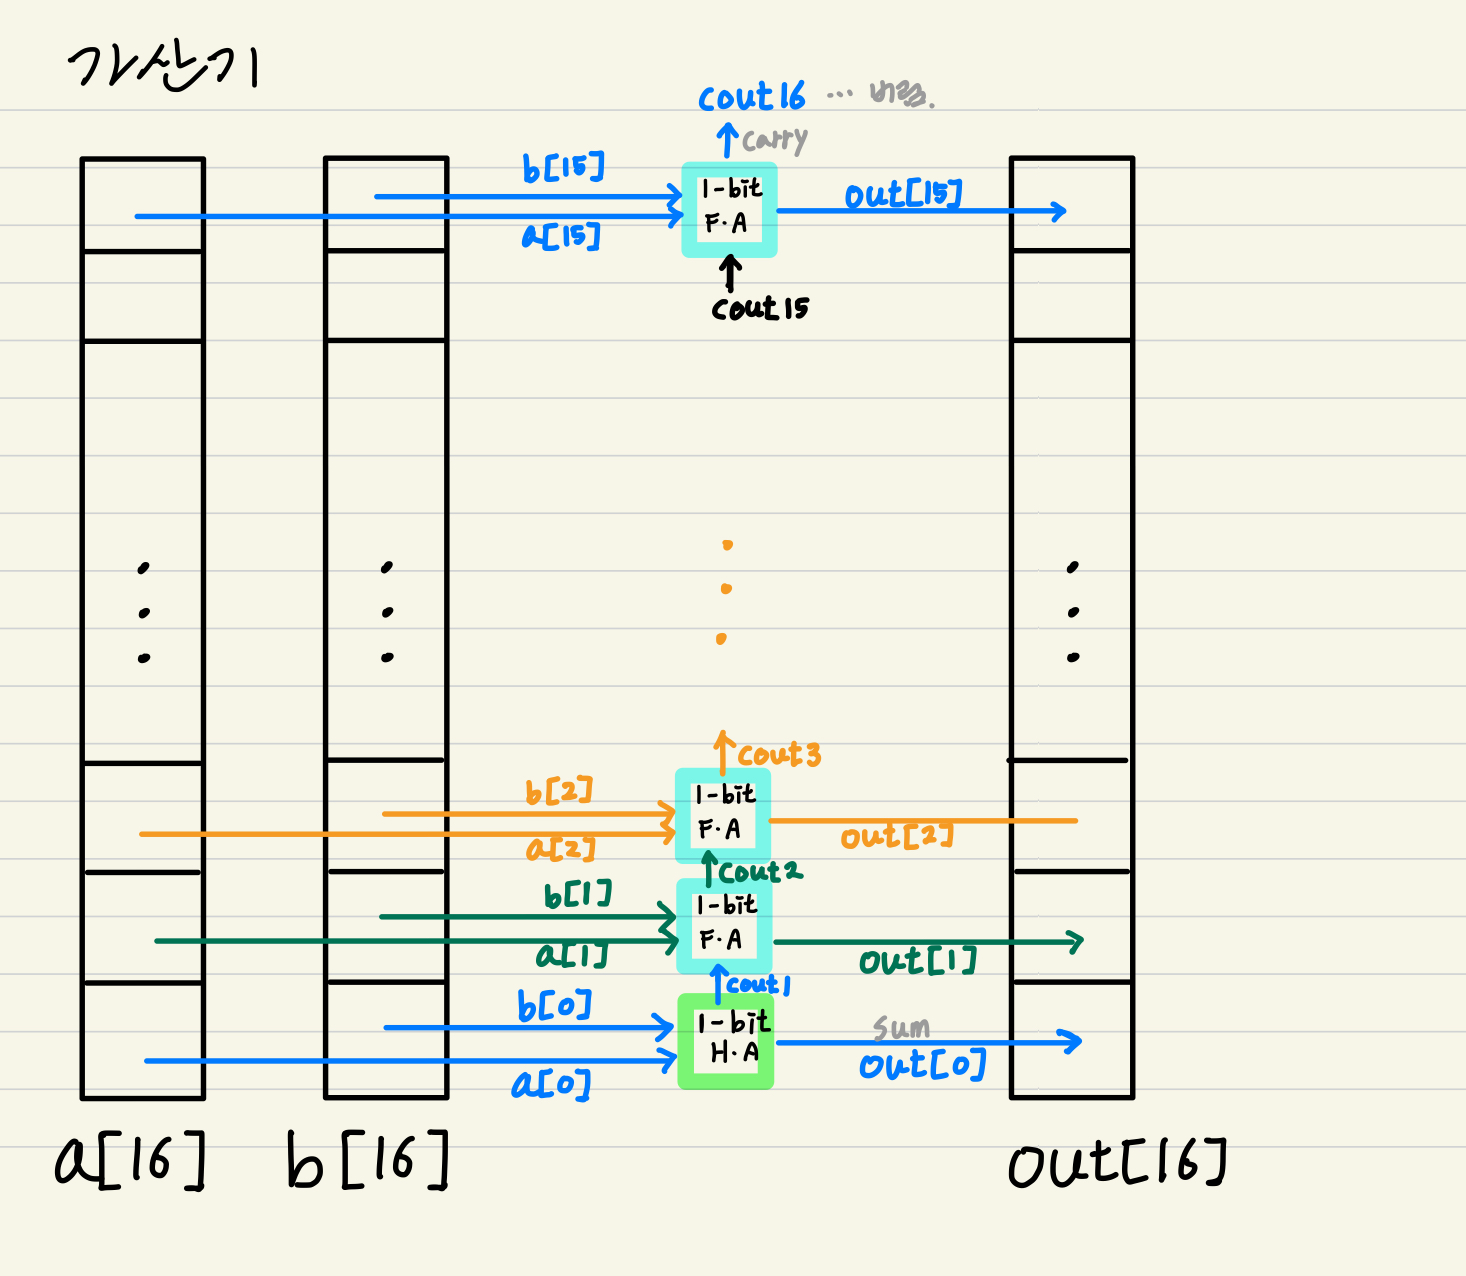 가산기
cout16 ... 버림.
carry
b[15]
a[15]
1-bit
F.A
out[15]
cout15
cout3
b[2]
a[2]
1-bit
F.A
out[2]
cout2
b[1]
a[1]
1-bit
F.A
out[1]
cout1
b[0]
a[0]
1-bit
H.A
sum
out[0]
a[16] b[16] out[16]